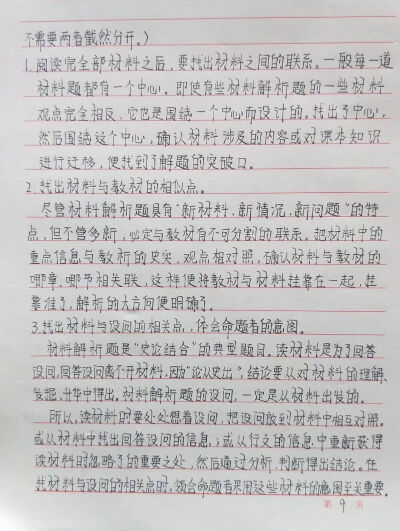 不需要两者截然分开。)
1.阅读完全部材料之后，要找出材料之间的联系。一般每一道
材料题都有一个中心，即使有些材料解析题的一些材料
观点完全相反，它也是围绕一个中心而设计的。找出了中心，
然后围绕这个中心，确认材料涉及的内容或对课本知识
进行迁移，便找到了解题的突破口。
2.找出材料与教材的相似点。
尽管材料解析题具有"新材料，新情况，新问题"的特
点，但不管多新，必定与教材有不可分割的联系。把材料中的
重点信息与教材的史实、观点相对照，确认材料与教材的
哪章、哪节相关联，这样便将教材与材料挂靠在一起，挂
靠准了，解析的大方向便明确了。
3.找出材料与设问的相关点，体会命题者的意图。
材料解析题是"史论结合"的典型题目。读材料是为了回答
设问，回答设问离不开材料，因为"论从史出"，结论要从对材料的理解、
发掘、升华中得出。材料解析题的设问，一定是从材料出发的。
所以，读材料时要处处想着设问，把设问放到材料中相互对照。
或从材料中找出回答设问的信息；或从行文的信息中重新获得
读材料时忽略了的重要之处，然后通过分析，判断得出结论。在
找材料与设问的相关点时，领会命题者采用这些材料的意图至关重要。
第 9 页